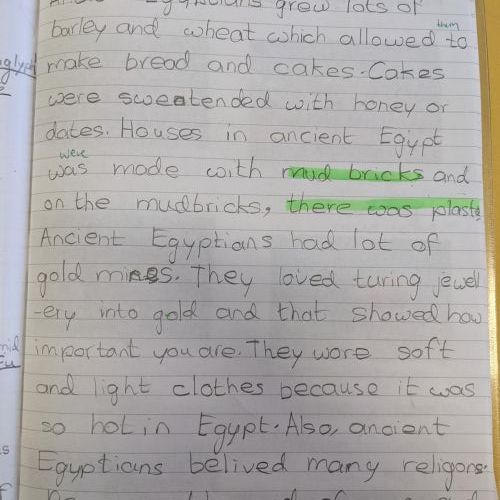 Egyptians grew lots of
barley and wheat which allowed them to
make bread and cakes. Cakes
were sweatended with honey or
dates. Houses in ancient Egipt
were
was made with mud bricks and
on the mudbricks, there was plaste
Ancient Egyptians had lot of
gold mines. They loved turing jewell
-ery into gold and that showed how
important you are. They wore soft
and light clothes because it was
so hot in Egypt. Also, ancient
Egypticns belived many religons.